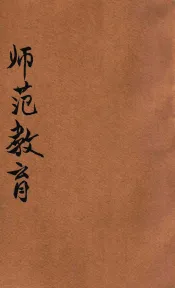 师范教育